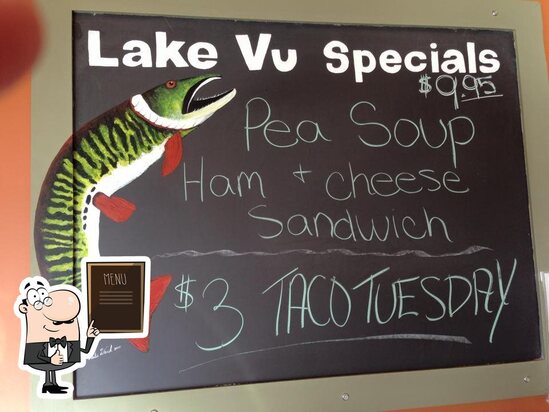 Lake Vu Specials
$9.95
Pea Soup
Ham + cheese
Sandwich
$3 TACO TUESDAY
MENU